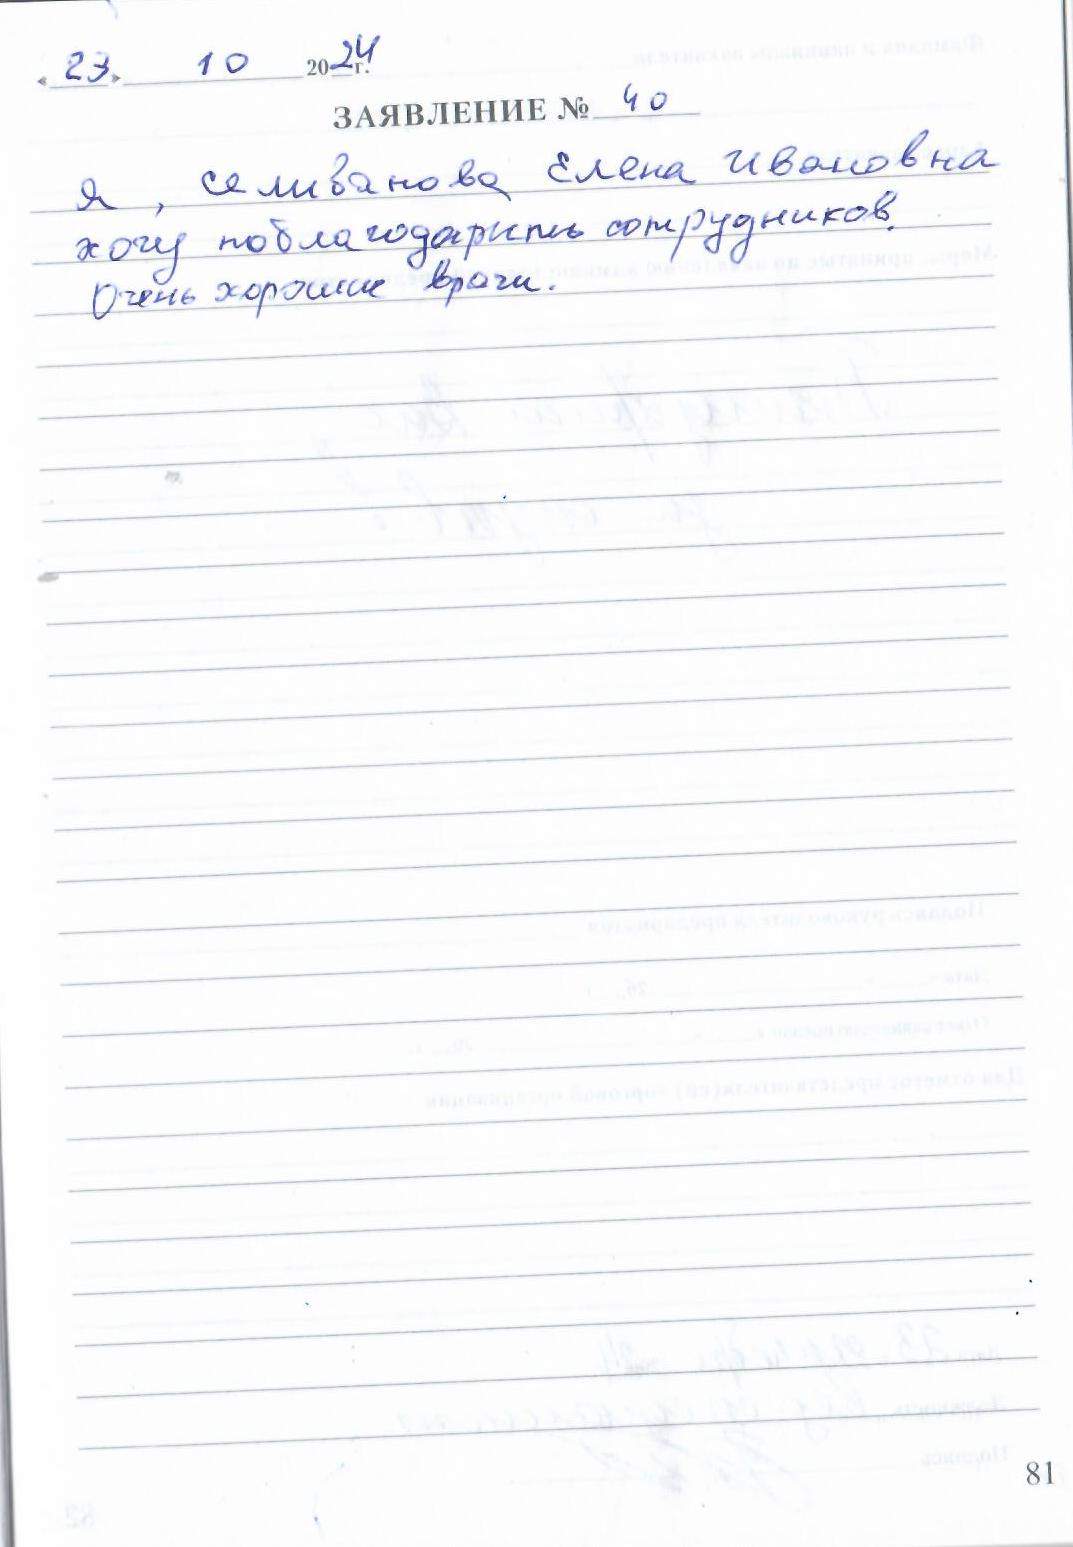 «23» 10 2024г.
ЗАЯВЛЕНИЕ № 40
Я, Селиванова Елена Ивановна
хочу поблагодарить сотрудников.
Очень хорошие врачи.
81